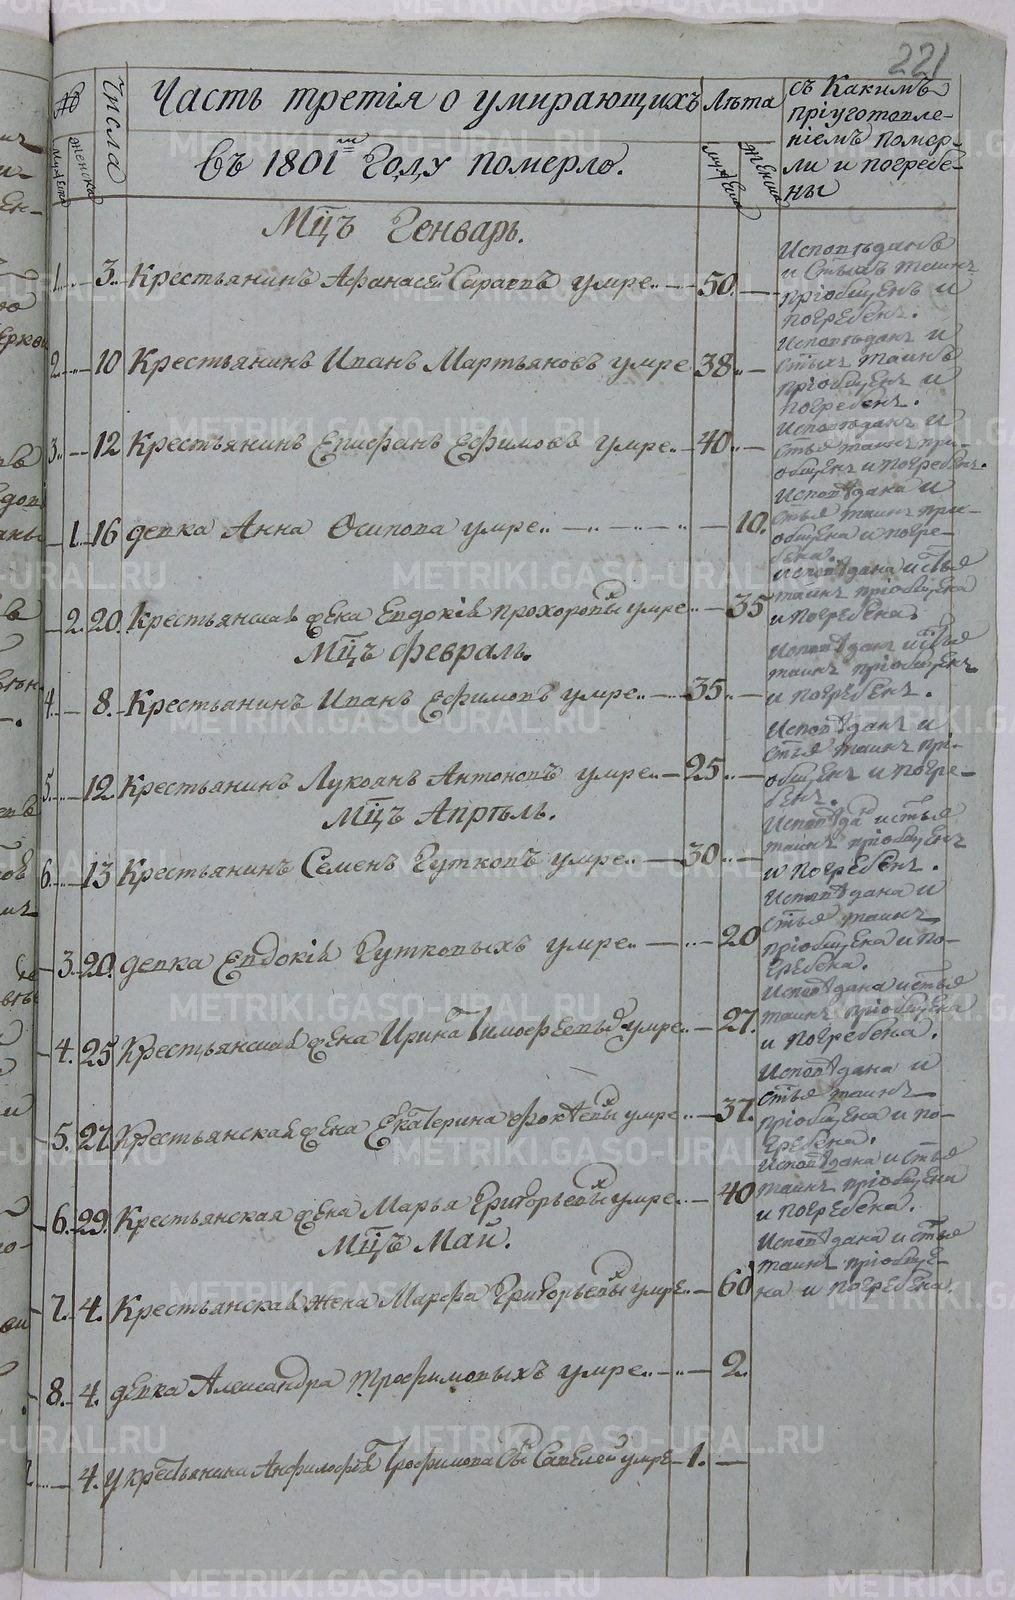 221
№
мужеска
женска
Числа
Часть третія о умирающихъ
въ 1801м Году померло.
Лѣта
мужеска
женска
съ Какимъ
пріуготовле-
ніемъ помер-
ли и погребе-
ны
Мцъ Генварь.
1. 3. Крестьянинъ Афанасей умре 50.
Исповѣданъ
и Стыхъ таинъ
пріобщенъ и
погребенъ.
2. 10 Крестьянинъ Иванъ Мартьяновъ умре 38
Исповѣданъ и
стыхъ таинъ
пріобщенъ и
погребенъ.
3. 12 Крестьянинъ Епифанъ Ефимовъ умре 40
Исповѣданъ и
стыя таинъ прі-
общенъ и погребенъ.
1. 16 девка Анна Осипова умре 10.
Исповѣдана и
стыя таинъ прі-
общена и погре-
бена.
2. 20. Крестьянская жена Евдокія Прохоровы умре 35
исповѣдана и стыя
таинъ пріобщена
и погребена.
Мцъ Февраль.
4. 8. Крестьянинъ Иванъ Ефимовъ умре 35
Исповѣданъ и стыя
таинъ пріобщенъ
и погребенъ.
5. 12 Крестьянинъ Лукоянъ Антоновъ умре 25
Исповѣданъ и
стыя таинъ прі-
общенъ и погре-
бенъ.
Мцъ Апрѣль.
6. 13 Крестьянинъ Семенъ Гутковъ умре 30
Исповѣданъ и стыя
таинъ пріобщенъ
и погребенъ.
3. 20. девка Евдокія Гутковыхъ умре 20
Исповѣдана и
стыя таинъ
пріобщена и по-
гребена.
4. 25 Крестьянская жена Ирина Тимофеевы умре 27.
Исповѣдана и стыя
таинъ пріобщена
и погребена.
5. 27. Крестьянская жена Екатерина умре 37.
Исповѣдана и
стыя таинъ
пріобщена и по-
гребена.
6. 29. Крестьянская жена Марья Григорьевы умре 40
Исповѣдана и стыя
таинъ пріобщена
и погребена.
Мцъ Май.
7. 4. Крестьянская жена Марфа Григорьевы умре 60
Исповѣдана и стыя
таинъ пріобще-
на и погребена.
8. 4. девка Александра Трофимовыхъ умре 2.
4. у крестьянина Анфилофія Трофимова снъ Савелей умре 1.
METRIKI.GASO-URAL.RU